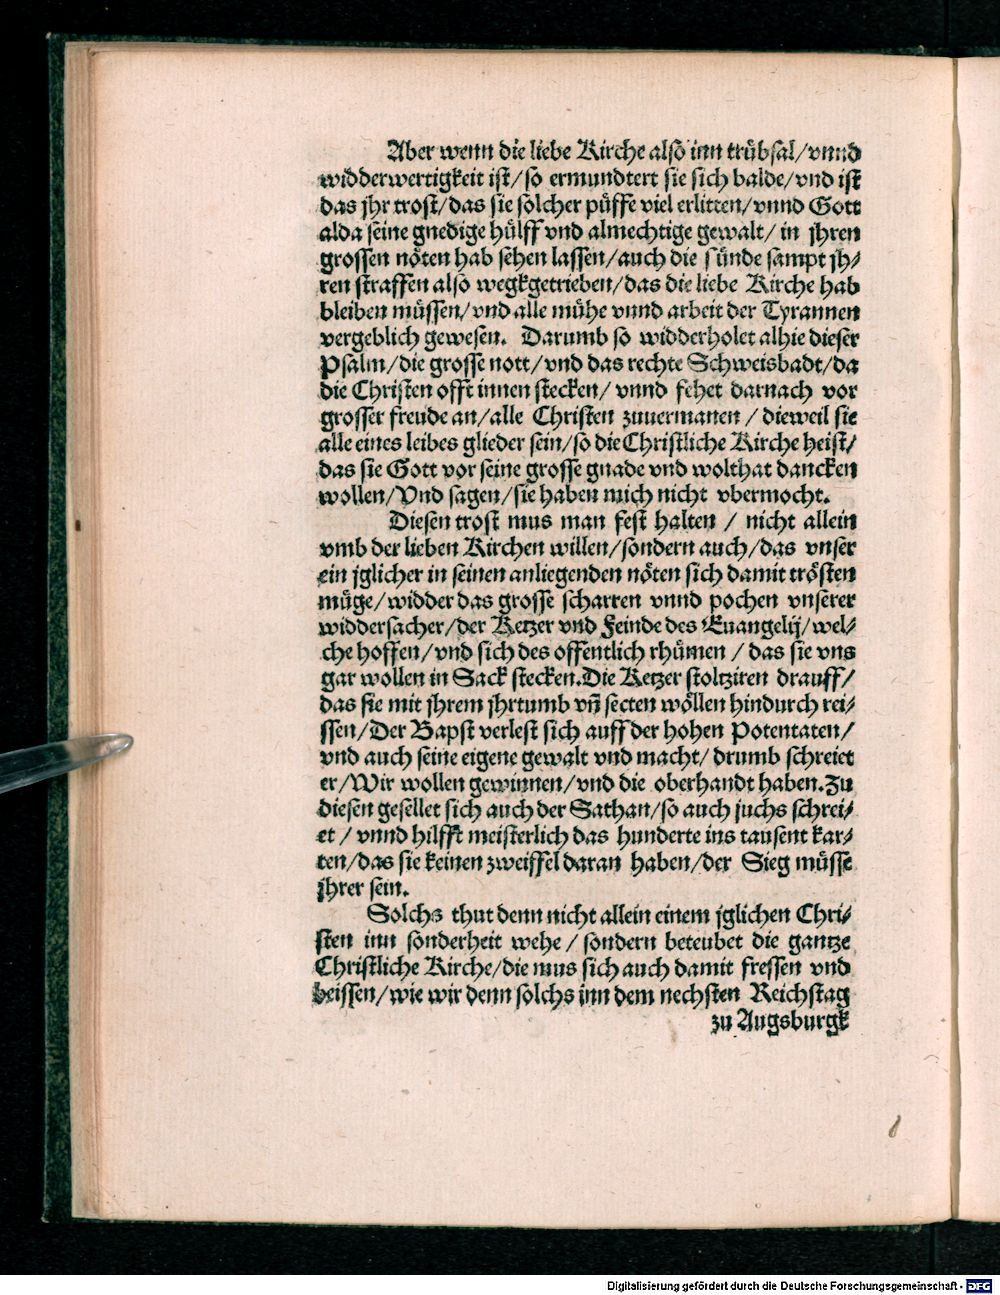 Aber wenn die liebe Kirche also inn trübsal/vnnd
widderwertigkeit ist/so ermundtert sie sich balde/vnd ist
das jhr trost/das sie solcher püffe viel erlitten/vnnd Gott
alda seine gnedige hülff vnd almechtige gewalt/in jhren
grossen nöten hab sehen lassen/auch die sünde sampt jh⸗
ren straffen also wegkgetrieben/das die liebe Kirche hab
bleiben müssen/vnd alle mühe vnnd arbeit der Tyrannen
vergeblich gewesen. Darumb so widderholet alhie dieser
Psalm/die grosse nott/vnd das rechte Schweisbadt/da
die Christen offt innen stecken/vnnd fehet darnach vor
grosser freude an/alle Christen zuuermanen/dieweil sie
alle eines leibes glieder sein/so die Christliche Kirche heist/
das sie Gott vor seine grosse gnade vnd wolthat dancken
wollen/Vnd sagen/sie haben mich nicht vbermocht.
Diesen trost mus man fest halten/nicht allein
vmb der lieben Kirchen willen/sondern auch/das vnser
ein jglicher in seinen anliegenden nöten sich damit trösten
müge/widder das grosse scharren vnnd pochen vnserer
widdersacher/der Ketzer vnd Feinde des Euangelij/wel⸗
che hoffen/vnd sich des offentlich rhümen/das sie vns
gar wollen in Sack stecken.Die Ketzer stoltziren drauff/
das sie mit jhrem jhrtumb vñ secten wöllen hindurch rei⸗
ssen/Der Bapst verlest sich auff der hohen Potentaten/
vnd auch seine eigene gewalt vnd macht/drumb schreiet
er/Wir wollen gewinnen/vnd die oberhandt haben.Zu
diesen gesellet sich auch der Sathan/so auch juchs schrei⸗
et/vnnd hilfft meisterlich das hunderte ins tausent kar⸗
ten/das sie keinen zweiffel daran haben/der Sieg müsse
jhrer sein.
Solchs thut denn nicht allein einem jglichen Chri⸗
sten inn sonderheit wehe/sondern beteubet die gantze
Christliche Kirche/die mus sich auch damit fressen vnd
beissen/wie wir denn solchs inn dem nechsten Reichstag
zu Augsburgk
Digitalisierung gefördert durch die Deutsche Forschungsgemeinschaft - DFG